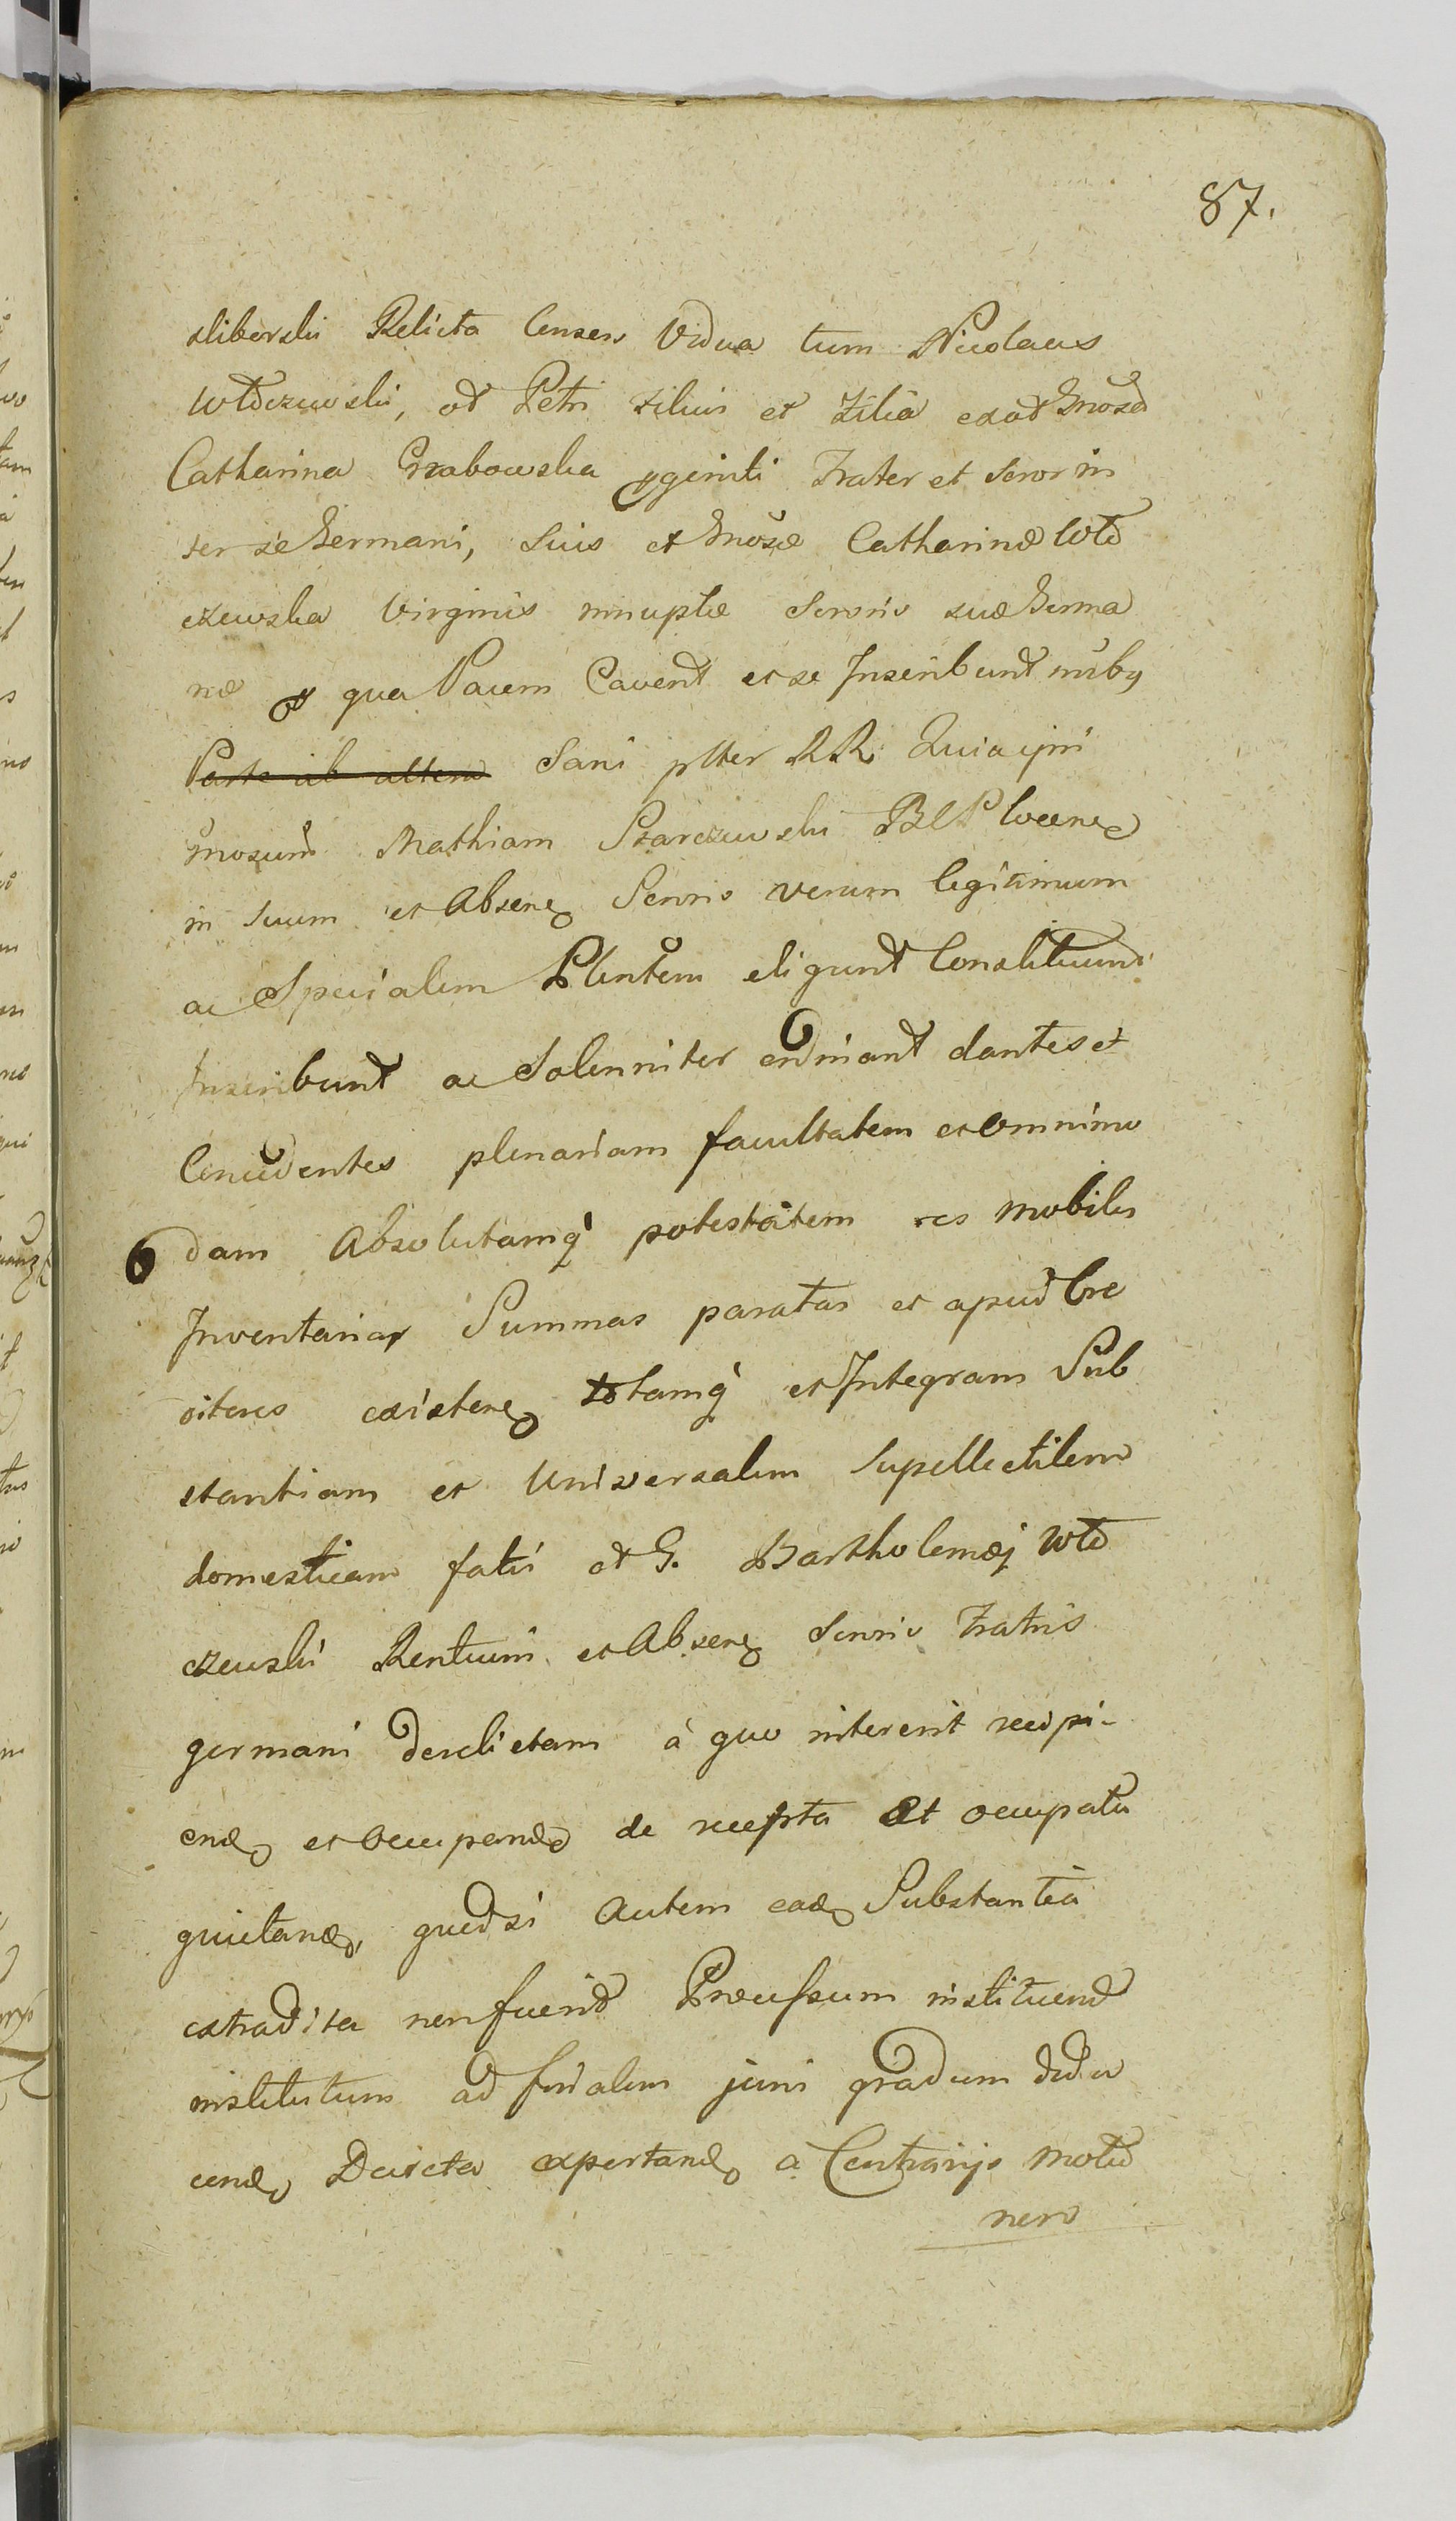 87.
sliberski Relicta Consors Vidua tum Nicolaus
Włodczewski, od Petri Filius et Filia exad Gnosa
Catharina Grabowska pgeniti Frater et Soror in
ter se Germani, Suis et Gnosæ Catharinæ Wło
czewska Virginis innuptæ Sororis suæ Germa
næ qua Pacem Cavent et se Inscribunt nibg
Parte ab altera Sani ptter RR. Quia ipsi
Gnosum Mathiam Skarczewski
in Suum et Absen Sororis verum legitimum
ac Specialem Plentem eligunt Constituunt
Inscribunt ac Solenniter ordinant dantes et
Concedentes plenariam facultatem et omnimo
dam Absolutamq potestatem res mobiles
Inventarias Summas paratas et apud Cre
ditores existen totamq et Integram Sub
stantiam et Universalem Supellectilem
domesticam fatii od G. Bartholomæj Wło
czewski Rentium et Absen Sororis Fratris
germani derelictam à quo intererit recipi-
end et occupand de recepta et occupata
quietand, quod si autem ead Substantia
extradita non fuerit Processum instituend
institutum ad finalem juris gradum dedu
cend Decreta exportand a Contrarijs motio
nem